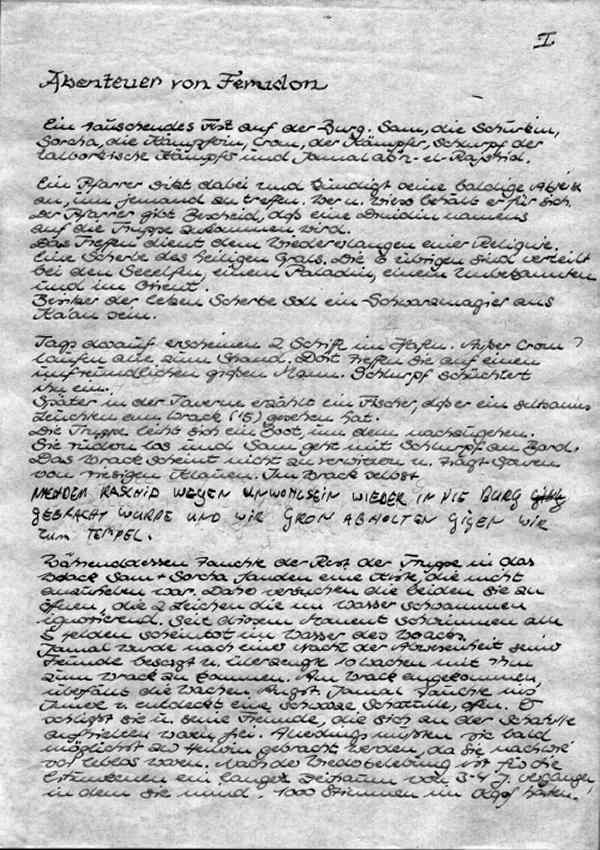 I
Abenteuer von Femidon
Ein rauschendes Fest auf der Burg. Sam, die Schurkin,
Sorcha, die Kämpferin, Crom, der Kämpfer, Schurpf der
Kämpfer und Jamal
Ein Pfarrer sitzt dabei und kündigt seine baldige Abreise
an, um jemand zu treffen. Wer u. wieso behält er für sich.
Der Pfarrer gibt Bescheid, daß eine Druidin namens
auf die Truppe zukommen wird.
Das Treffen dient dem Wiedererlangen einer Reliquie.
Eine Scherbe des heiligen Grals. Die 6 übrigen sind verteilt
bei den Seeelfen, einem Paladin, einem Unbekannten
und im Orient.
Besitzer der Scherbe soll ein Schwarzmagier aus
Ka'an sein.
Tags darauf erscheinen 2 Schiffe im Hafen. Außer Crom ?
laufen alle zum Strand. Dort treffen sie auf einen
unfreundlichen großen Mann. Schurpf schüchtert
ihn ein.
Später in der Taverne erzählt ein Fischer, daß er ein seltsames
Leuchten am Wrack gesehen hat.
Die Truppe leiht sich ein Boot, um dem nachzugehen.
Sie rudern los und Sam geht mit Schurpf an Bord.
Das Wrack scheint nicht zu verwittern u. trägt Spuren
von riesigen Klauen. Im Wrack selbst
NACHDEM RASCHID WEGEN UNWOHLSEIN WIEDER IN DIE BURG
GEBRACHT WURDE UND WIR GRON ABHOLTEN GIGEN WIR
ZUM TEMPEL.
Währenddessen tauchte der Rest der Truppe in das
Wrack Sam + Sorcha fanden eine Kiste, die nicht
war. Daher versuchen die beiden sie zu
öffnen, die 2 Leichen die im Wasser schwammen
ignorierend. Seit diesem Moment schwimmen alle
5 Helden scheintot im Wasser des Wracks.
Jamal wurde nach einer Nacht der Abwesenheit seiner
Freunde besorgt u. überzeugte 10 Wachen mit ihm
zum Wrack zu kommen. Am Wrack angekommen,
überfällt die Wachen Angst. Jamal tauchte ins
Innere u. entdeckt eine schwarze Schatulle, offen. Er
schließt sie u. seine Freunde, die sich an der Schatulle
waren frei. Allerdings mußten sie bald
möglichst zu gebracht werden, da sie nach wie
vor leblos waren. Nach der Wiederbelebung ist für die
ein langer Zeitraum von 3-4 J. vergangen,
in dem sie mind. 1000 Stimmen im Kopf hatten.